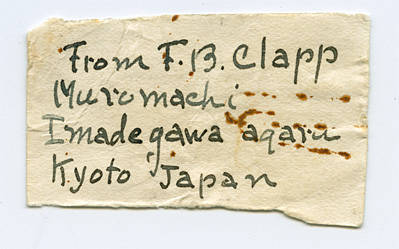 From F.B. Clapp
Muromachi
Imadegawa agaru
Kyoto Japan